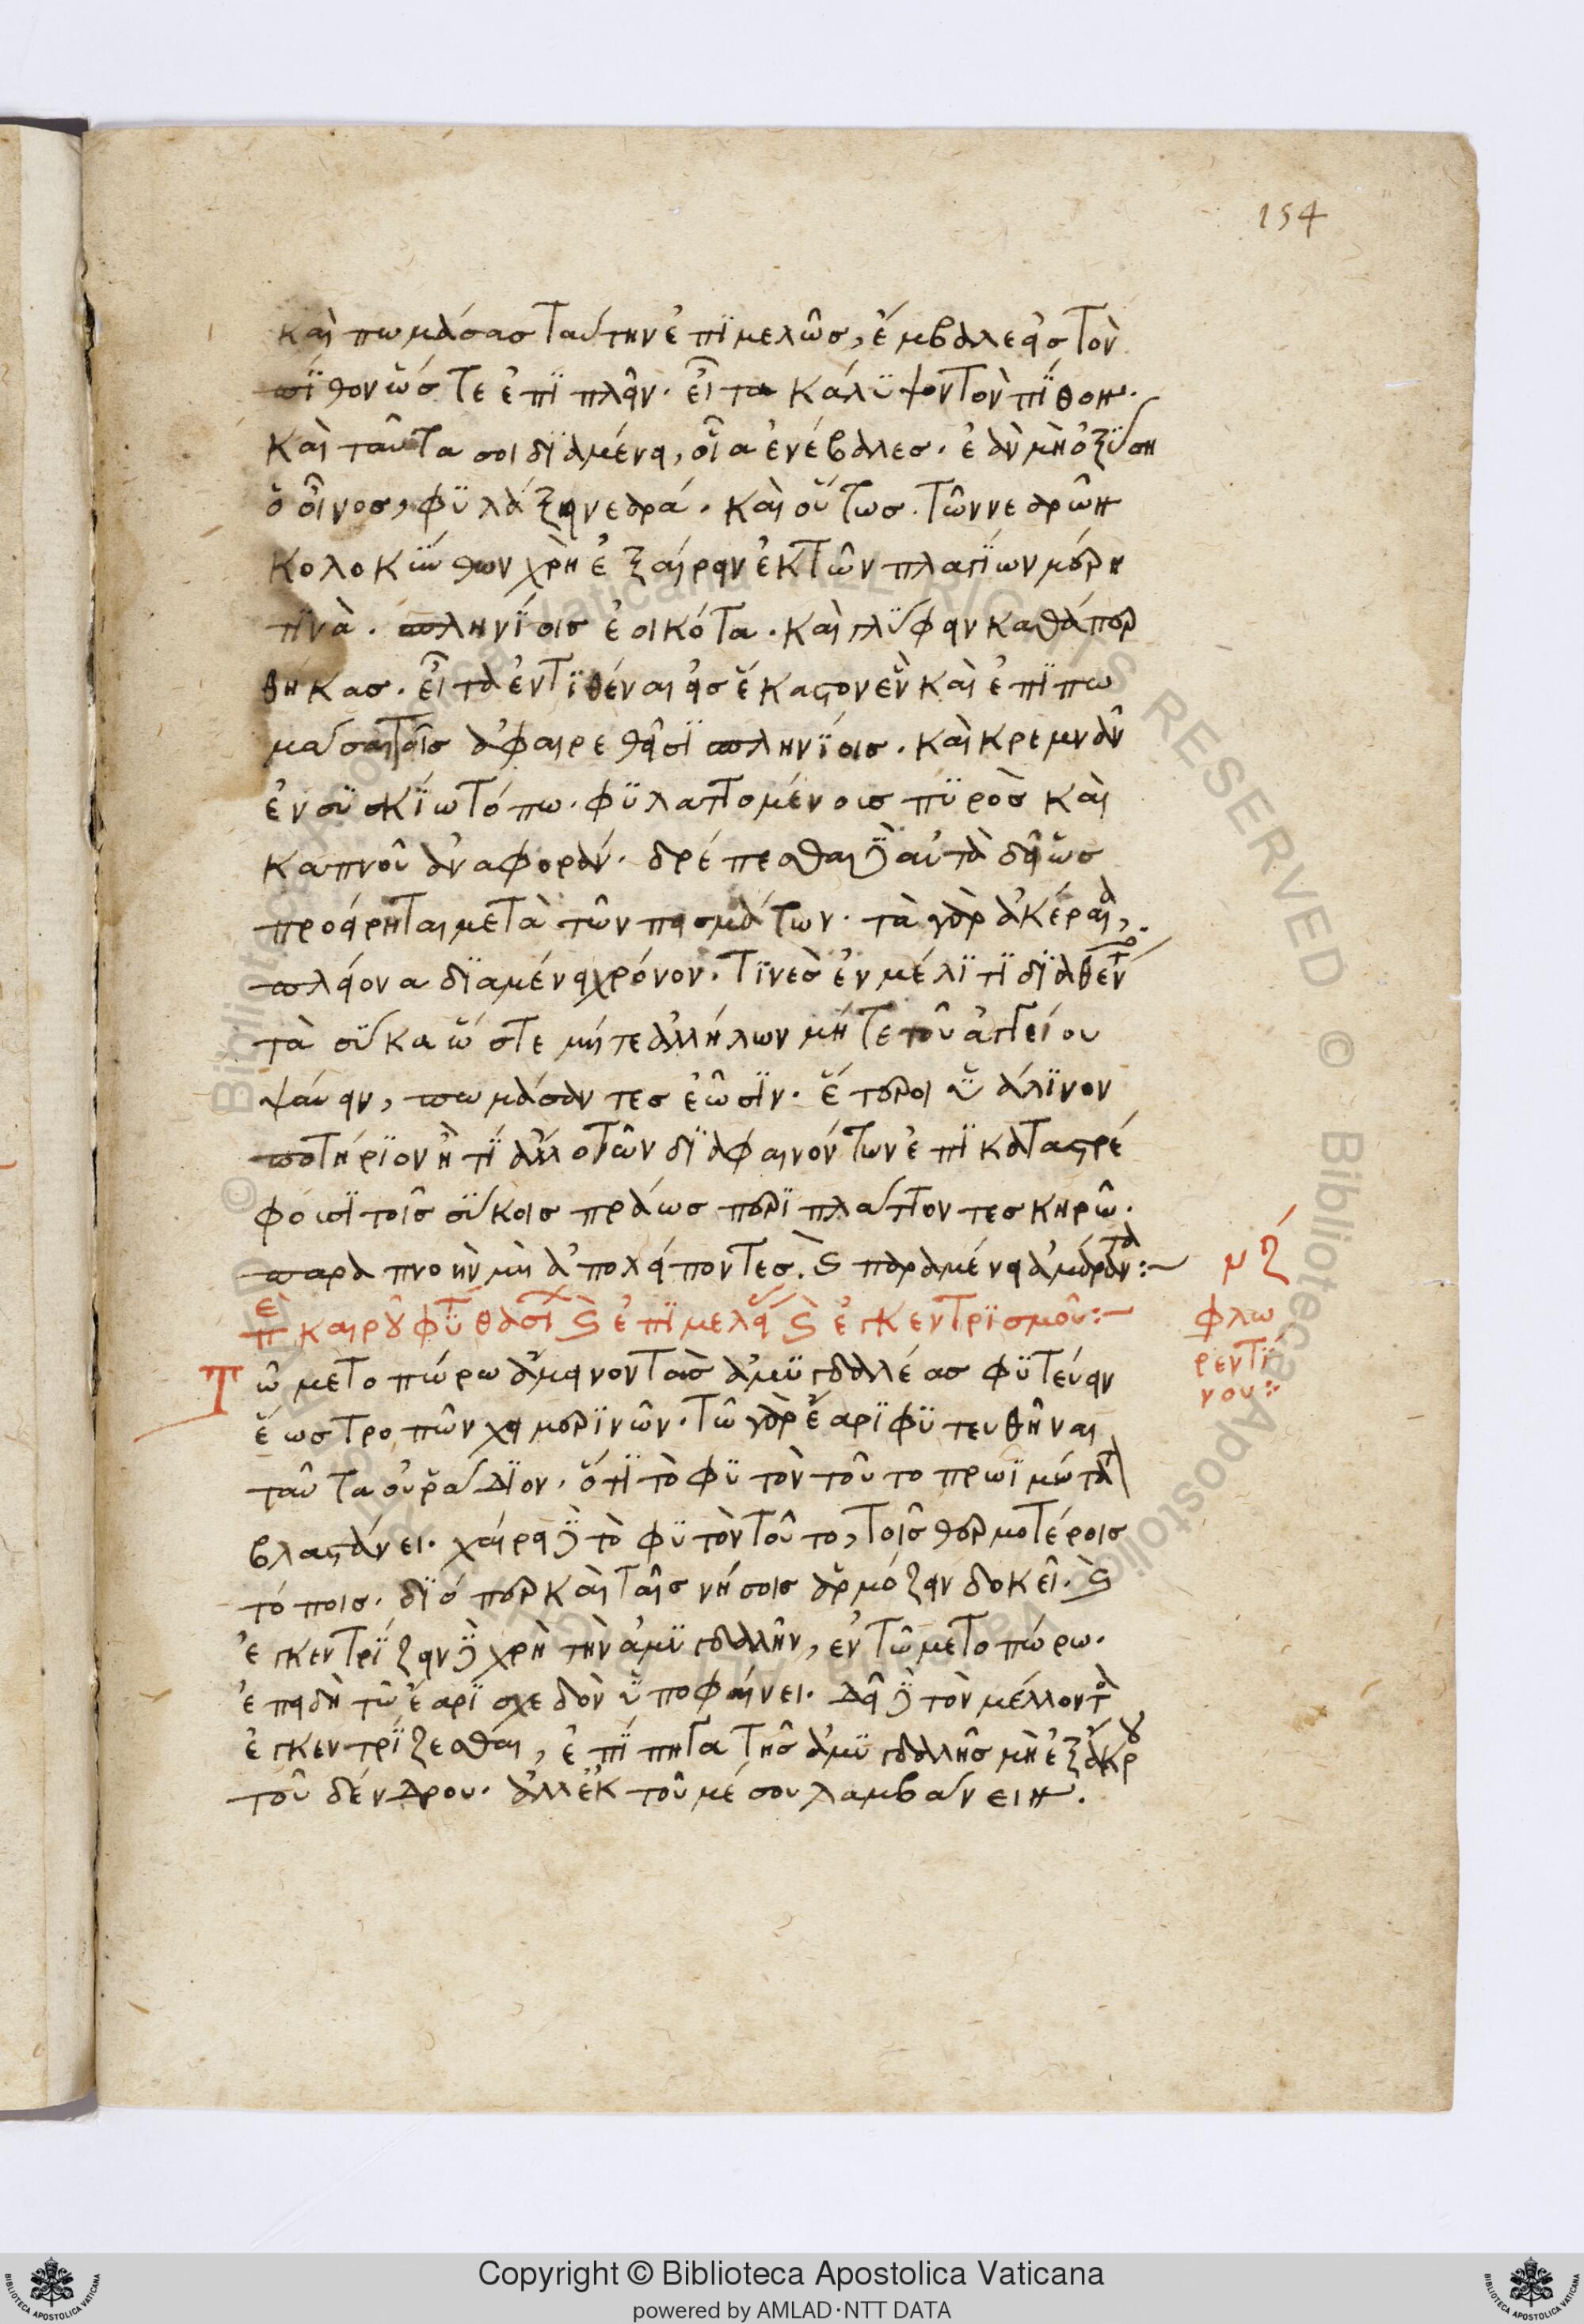 154
καὶ πωμάσας ταύτην ἐπϊμελῶς, ἔμβαλε εἰς τὸν
πίθον ὥστε ἐπϊπλεῖν. εἶτα κάλϋψον τὸν πίθον.
καὶ ταῦτα σοι δϊαμένει, οἷα ἐνέβαλες. ἐὰν μὴ ὀξΰση
ὁ οἶνος, φϋλάξει νεαρά. καὶ οὕτως. τῶν νεαρῶν
κολοκϋνθων χρὴ ἐξαίρειν ἐκ τῶν πλαγϊων μέρη
τϊνὰ. πληνΐοις ἐοικότα. καὶ γλΰφειν καθάπερ
θήκας. εἶτα ἐντϊθέναι εἰς ἕκαστον ἓν καὶ ἐπϊπω
μάσαι τοῖς ἀφαιρεθεῖσϊ πληνΐοις. καὶ κρεμνᾶν
ἐν σϋσκΐω τόπω. φϋλαττομένοις πϋρὸς καὶ
καπνοῦ ἀναφορὰν. δρέπεσθαι δὲ αὐτὰ δεῖ ὡς
προείρηται μετὰ τῶν πεισμάτων. τὰ γὰρ ἀκέραια,
πλείονα δϊαμένει χρόνον. τϊνὲς ἐν μέλϊτϊ δϊαθέντες
τὰ σῦκα ὥστε μήτε ἀλλήλων μήτε τοῦ ἀγγείου
ψαύειν, πωμάσαντες ἐῶσϊν. ἕτεροι ὑάλϊνον
ποτήρϊον ἢ τϊ ἄλλο τῶν δϊαφαινόντων ἐπϊκαταστρέ
φουσϊ τοῖς σΰκοις πράως περϊπλάττοντες κηρῶ.
παραπνοὴν μὴ ἀπολείποντες. καὶ παραμένει ἀμάραντα:
νζ
περὶ καιροῦ φϋτ θάσϊ καὶ ἐπϊμελεί καὶ ἐγκεντρϊσμοῦ:
φλω
ρεντΐ
νου:
Τῶ μετοπώρω ἄμεινον τὰς ἀμϋγδαλέας φϋτεύειν
ἕως τροπῶν χειμερϊνῶν. τῶ γὰρ ἔαρϊ φϋτευθῆναι
ταῦτα οὐ ῥάδϊον. ὅτϊ τὸ φϋτὸν τοῦτο πρωϊμώτατα
βλαστάνει. χαίρει δὲ τὸ φϋτὸν τοῦτο, τοῖς θερμοτέροις
τόποις. δϊόπερ καὶ ταῖς νήσοις ἁρμόζειν δοκεῖ. καὶ
ἐγκεντρΐζειν δὲ χρὴ τὴν ἀμϋγδαλῆν, ἐν τῶ μετοπώρω.
ἐπειδὴ τῶ ἔαρϊ σχεδὸν ὑποφαίνει. δεῖ δὲ τὸν μέλλοντα
ἐγκεντρΐζεσθαι, ἐπϊπητα τῆς ἀμϋγδαλῆς μὴ ἐξ ἄκρου
τοῦ δένδρου. ἀλλ' ἐκ τοῦ μέσου λαμβάνειν.
Copyright © Biblioteca Apostolica Vaticana
powered by AMLAD·NTT DATA